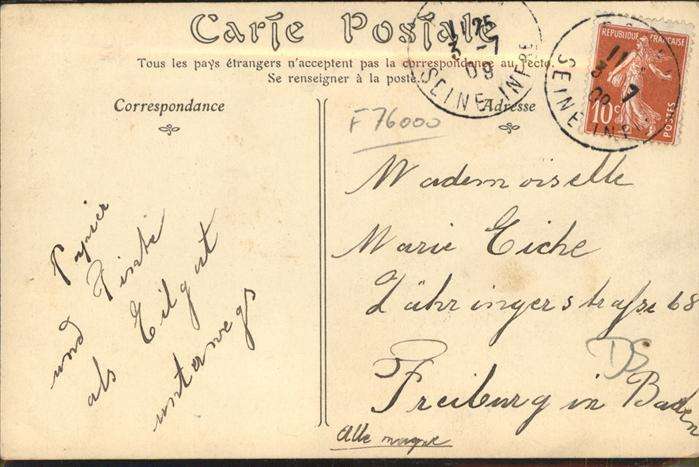 Carte Postale
Tous les pays étrangers n'acceptent pas la correspondance au recto.
Se renseigner à la poste.
Correspondance
Adresse
F 76000
11 25
3 -7
09
SEINE INFRE
REPUBLIQUE FRANÇAISE
10c
POSTES
11
3 7
09
SEINE INF
Papier
und Tinte
als Eilgut
unterwegs
Mademoiselle
Marie Eiche
Zähringerstrasse 68
Freiburg in Baden
DS
Allemagne